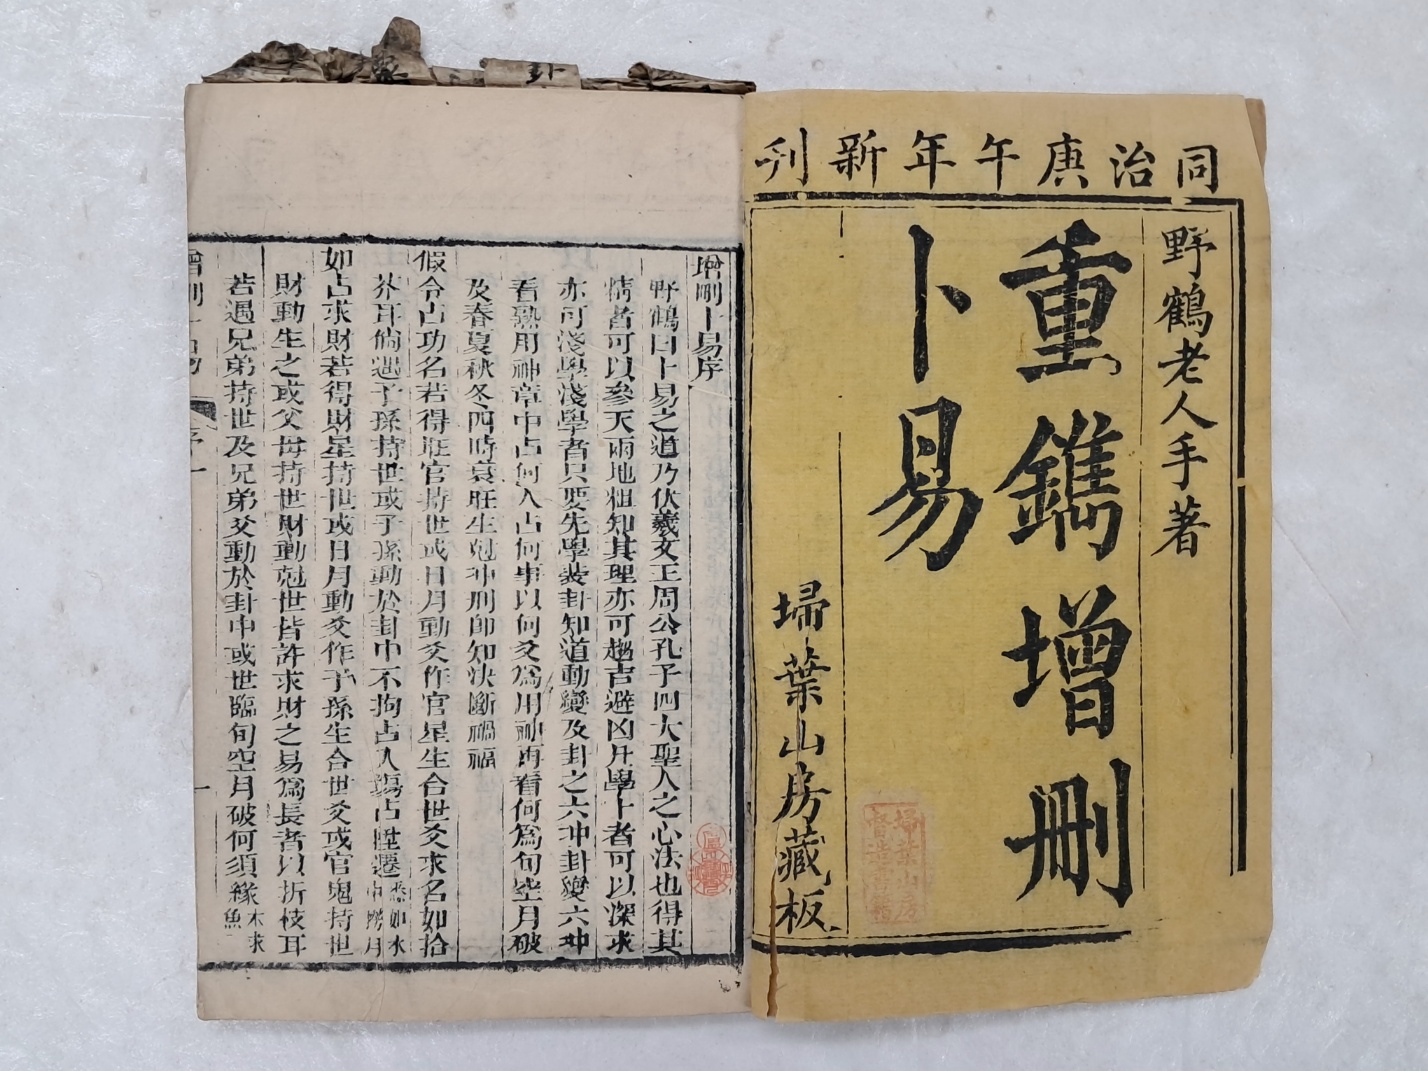 同治庚午年新刊
野鶴老人手著
重鐫增刪
卜易
埽葉山房藏板
增刪卜易序
野鶴曰卜易之道乃伏羲文王周公孔子四大聖人之心法也得其
情者可以參天兩地粗知其理亦可趨吉避凶凡學卜者可以深求
亦可淺學淺學者只要先學裝卦知道動變及卦之六冲卦變六冲
看熟用神章中占何人占何事以何爻爲用神再看何爲旬空月破
及春夏秋冬四時衰旺生剋冲刑卽知決斷禍福
假令占功名若得旺官持世或日月動爻作官星生合世爻求名如拾
芥耳倘遇子孫持世或子孫動於卦中不拘占人謁占陞遷
如占求財若得財星持世或日月動爻作子孫生合世爻或官鬼持世
財動生之或父母持世財動剋世皆許求財之易爲長者以折枝耳
若遇兄弟持世及兄弟爻動於卦中或世臨旬空月破何須緣木求
魚